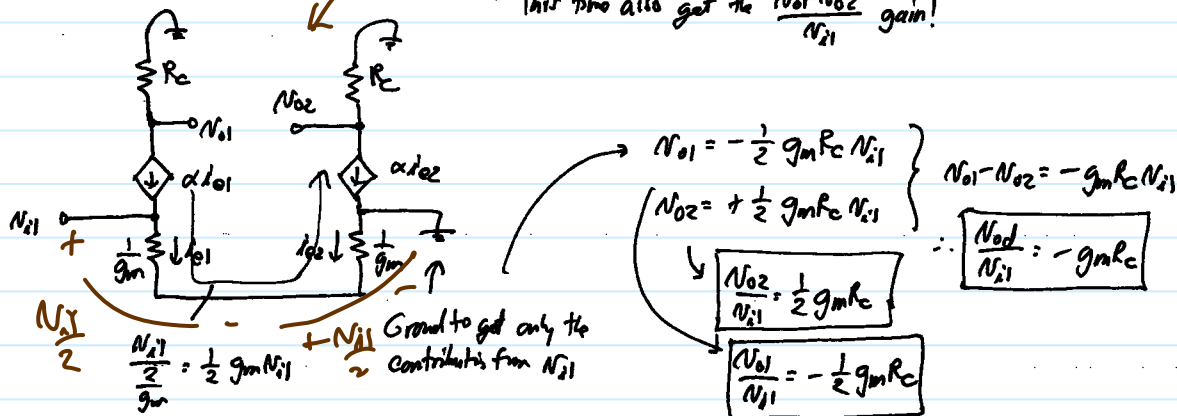 This time also get the (v_o1 - v_o2)/v_i1 gain!
R_C
R_C
v_o2
v_o1
αi_e1
αi_e2
v_i1
+
1/g_m
↓ i_e1
i_e2 ↓
1/g_m
-
v_i1/2
-
+ v_i1/2
Ground to get only the
contribution from v_i1
(v_i1/2)/(1/g_m) = 1/2 g_m v_i1
v_o1 = - 1/2 g_m R_C v_i1
v_o2 = + 1/2 g_m R_C v_i1
v_o1 - v_o2 = - g_m R_C v_i1
∴ v_od/v_i1 = - g_m R_C
v_o2/v_i1 = 1/2 g_m R_C
v_o1/v_i1 = - 1/2 g_m R_C